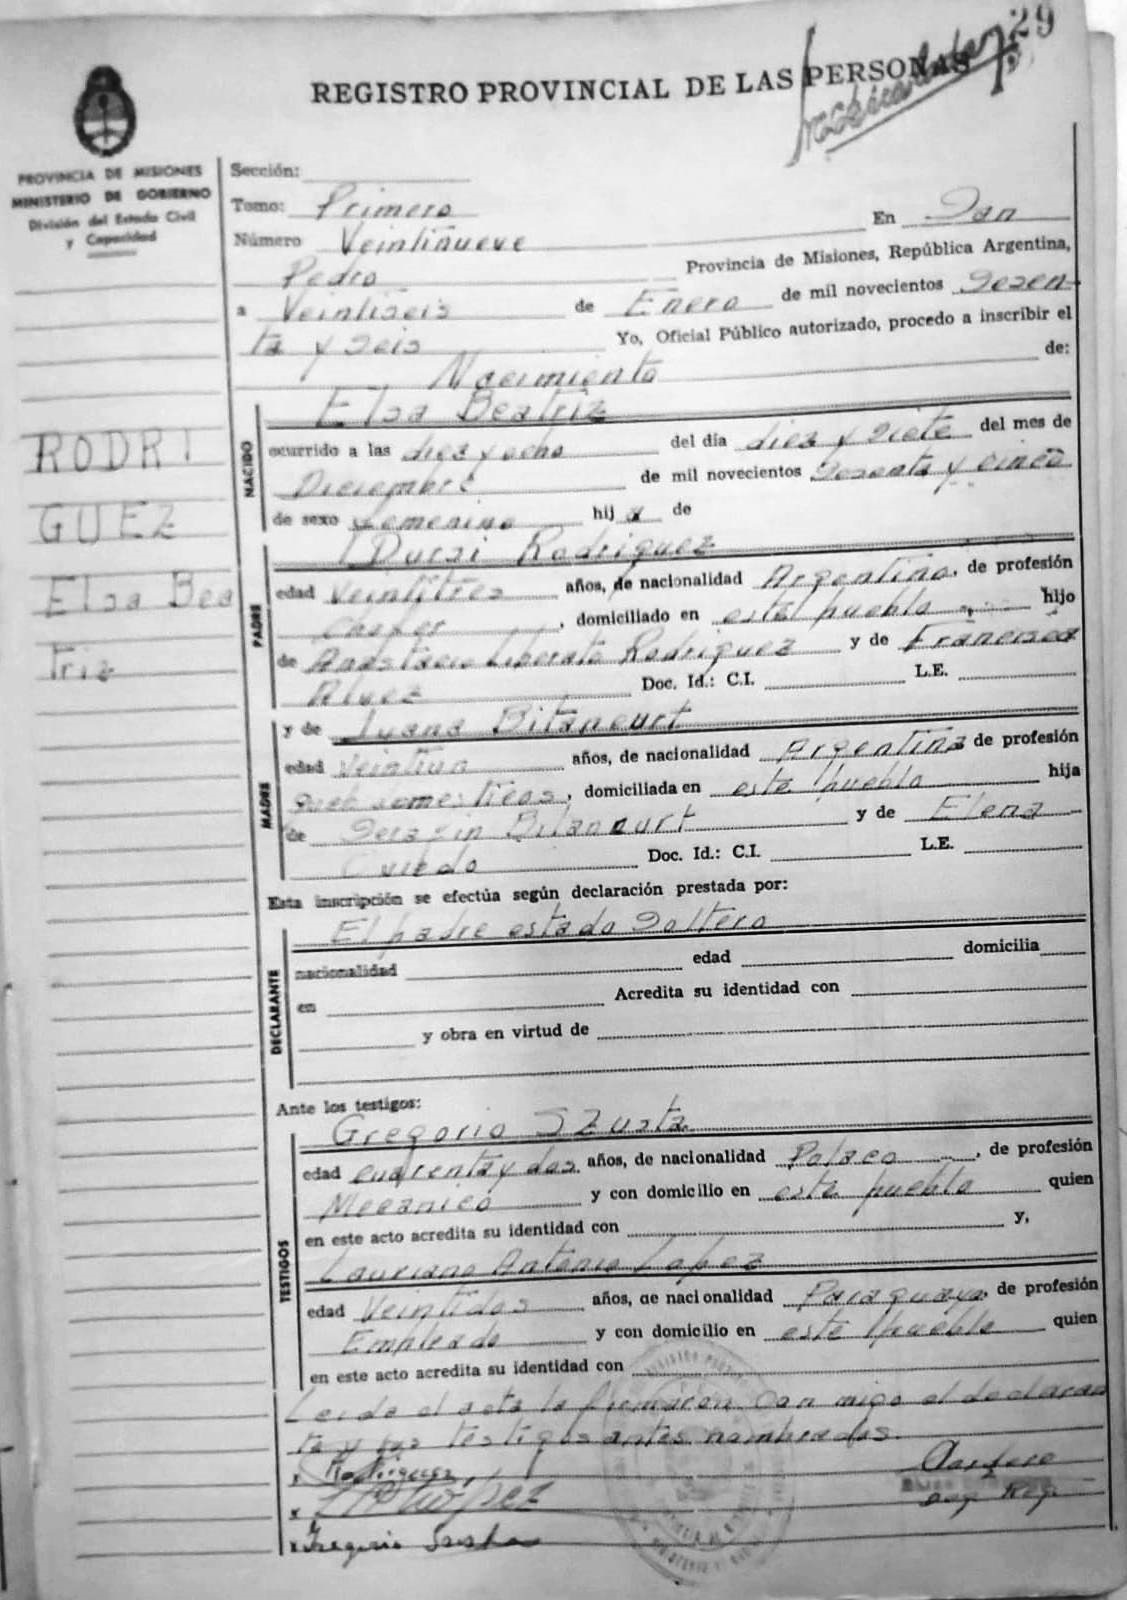 29
REGISTRO PROVINCIAL DE LAS PERSONAS
PROVINCIA DE MISIONES
MINISTERIO DE GOBIERNO
División del Estado Civil
y Capacidad
Sección:
Tomo: Primero
En San
Número Veintinueve
Pedro Provincia de Misiones, República Argentina,
a Veintiseis de Enero de mil novecientos Sesen-
ta y seis Yo, Oficial Público autorizado, procedo a inscribir el
Nacimiento de:
RODRI
GUEZ
Elsa Bea
Triz
NACIDO
Elsa Beatriz
ocurrido a las diez y ocho del día diez y siete del mes de
Diciembre de mil novecientos Sesenta y cinco
de sexo femenino hija de
PADRE
Rodriguez
edad Veintitres años, de nacionalidad Argentino, de profesión
Chofer, domiciliado en este pueblo hijo
de Anastacio Liberato Rodriguez y de Francisca
Alvez Doc. Id.: C.I. L.E.
MADRE
y de Juana Bitancurt
edad Veintiun años, de nacionalidad Argentina de profesión
queh domesticos, domiciliada en este pueblo hija
de Serafin Bitancurt y de Elena
Oviedo Doc. Id.: C.I. L.E.
Esta inscripción se efectúa según declaración prestada por:
DECLARANTE
El padre estado Soltero
nacionalidad edad domicilia
en Acredita su identidad con
y obra en virtud de
Ante los testigos:
TESTIGOS
Gregorio Szusta
edad cuarenta y dos años, de nacionalidad Polaco, de profesión
Mecanico y con domicilio en este pueblo quien
en este acto acredita su identidad con y,
Lauriano Antonio Lopez
edad Veintidos años, de nacionalidad Paraguayo, de profesión
Empleado y con domicilio en este pueblo quien
en este acto acredita su identidad con
Leido el acta la firmaron con migo el declaran
te y los testigos antes nombrados.
x Rodriguez
x
x Gregorio